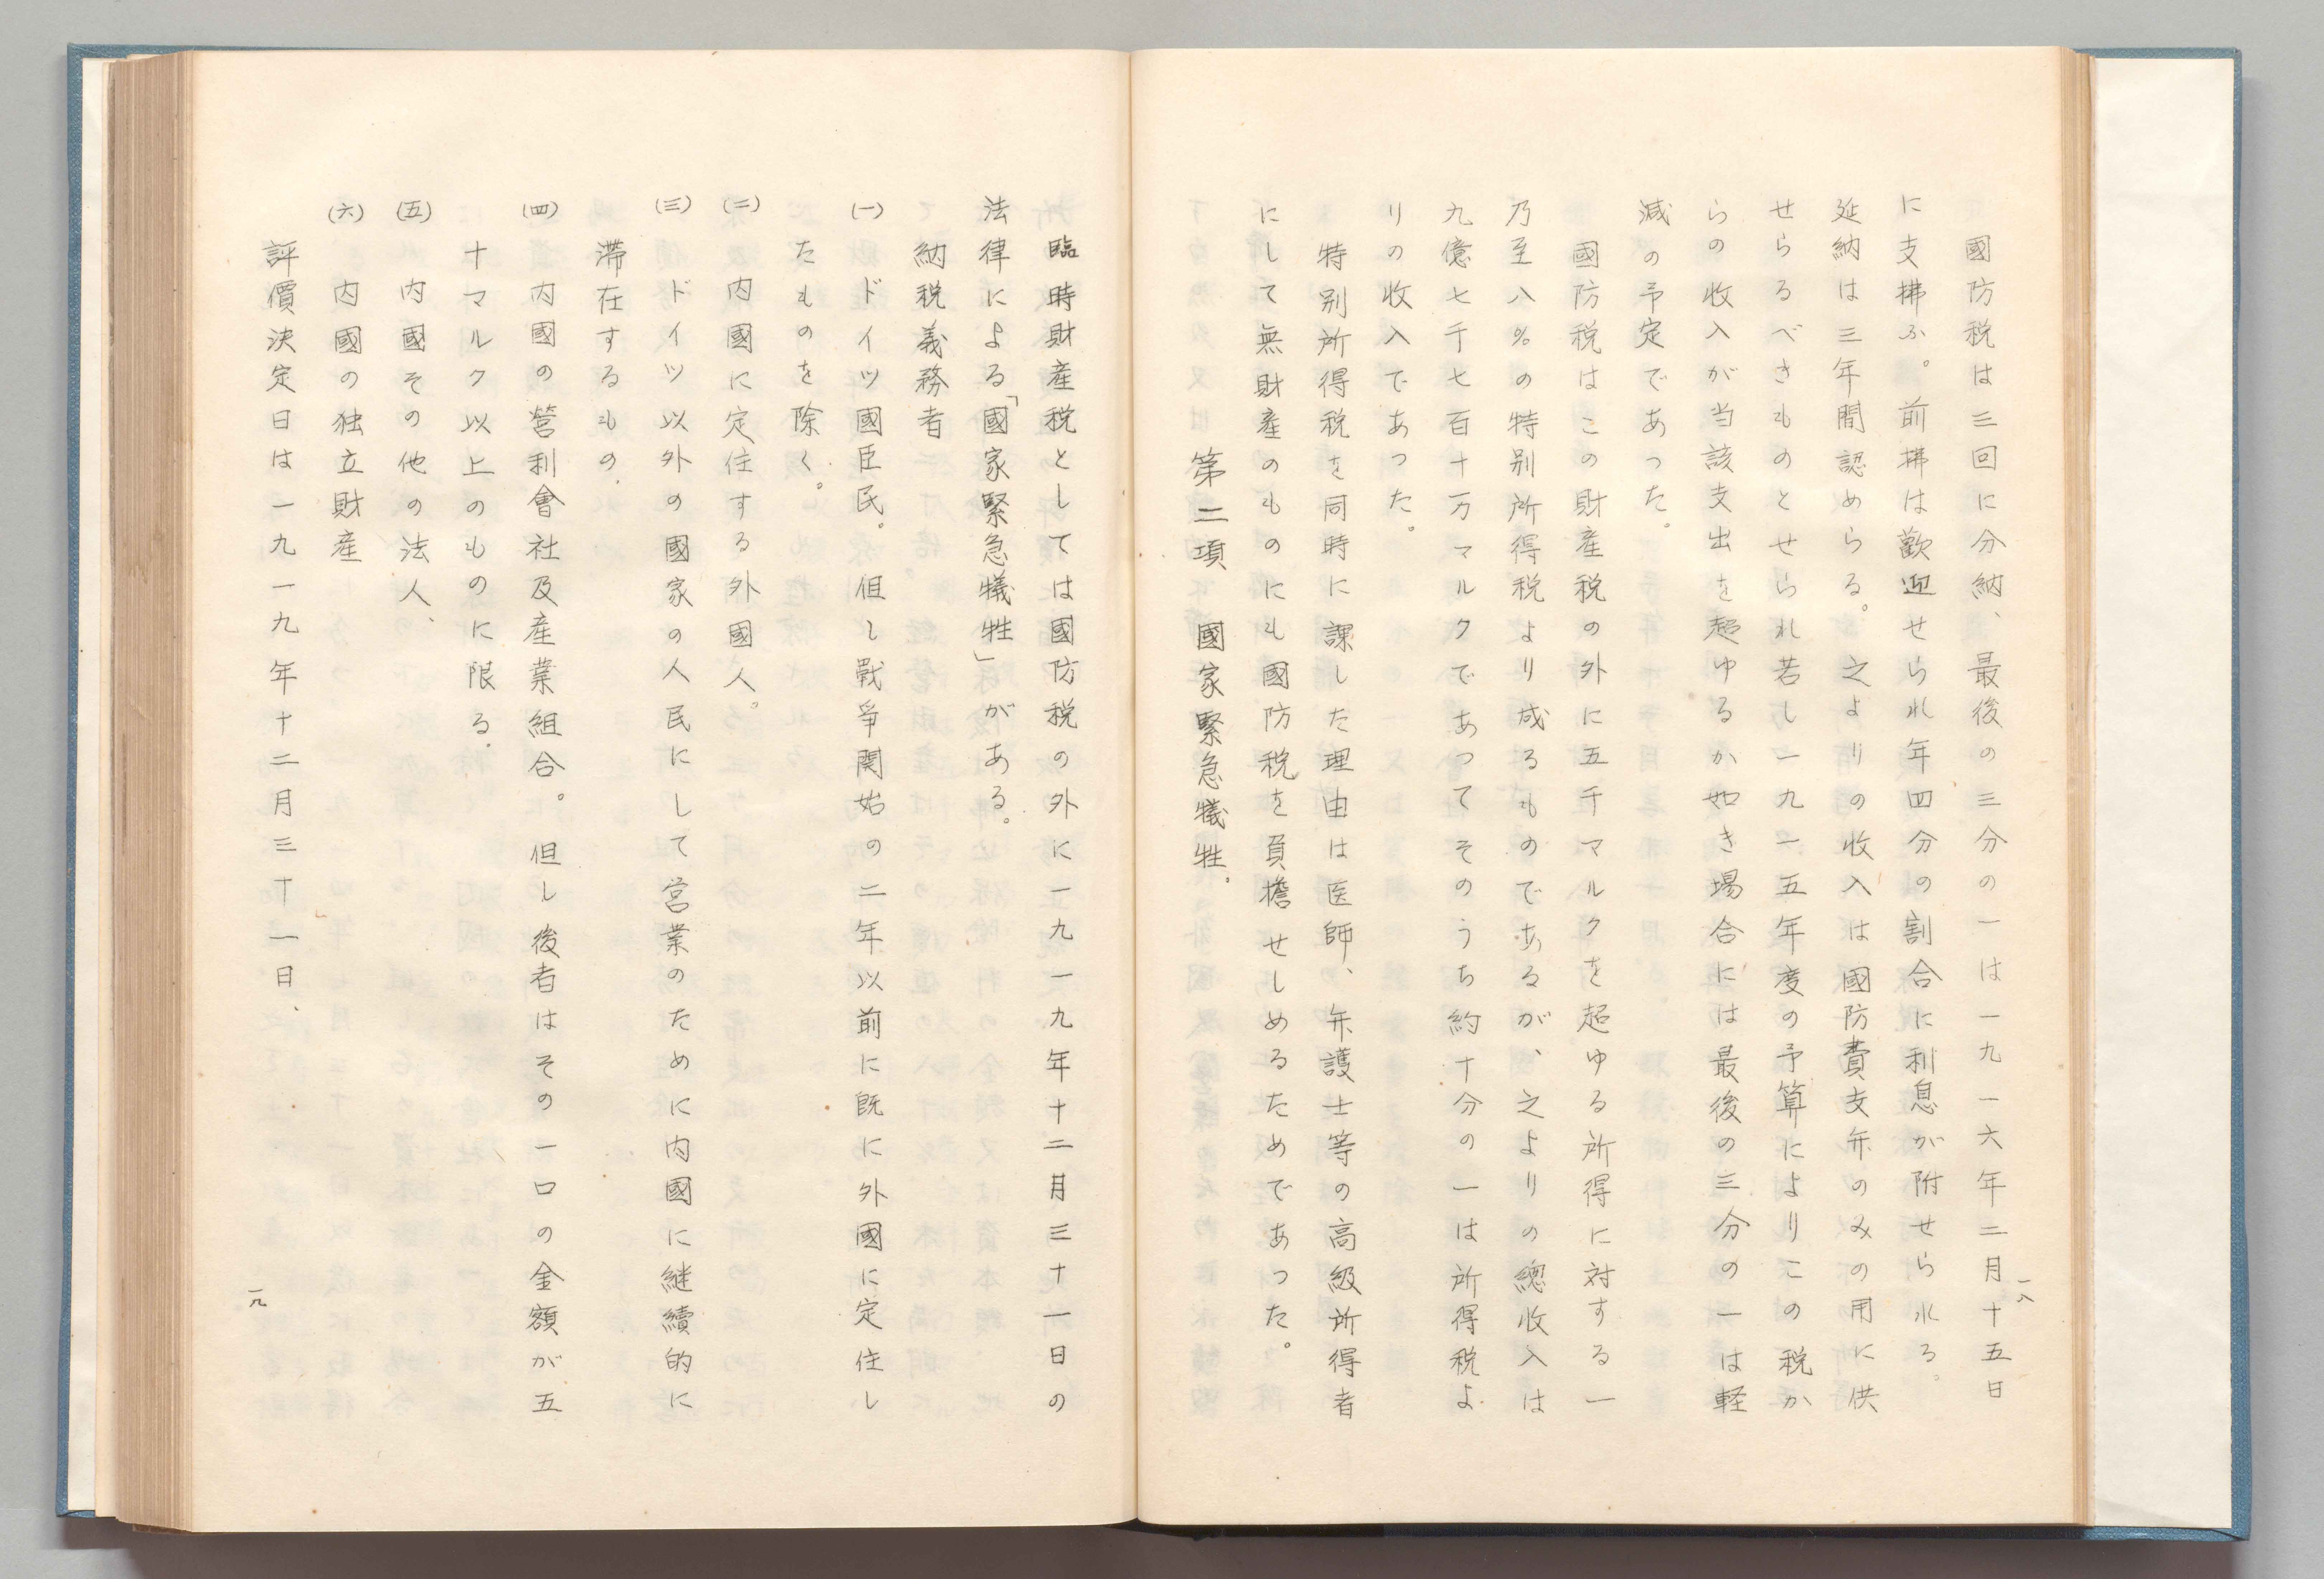 國防税は三回に分納、最後の三分の一は一九一六年二月十五日
に支拂ふ。前拂は歡迎せられ年四分の割合に利息が附せられる。
延納は三年間認めらる。之よりの收入は國防費支弁のみの用に供
せらるべきものとせられ若し一九一五年度の予算によりこの税か
らの收入が当該支出を超ゆるか如き場合には最後の三分の一は軽
減の予定であった。
國防税はこの財産税の外に五千マルクを超ゆる所得に対する一
乃至八%の特別所得税より成るものであるが、之よりの總收入は
九億七千七百十万マルクであつてそのうち約十分の一は所得税よ
りの收入であった。
特別所得税を同時に課した理由は医師、弁護士等の高級所得者
にして無財産のものにも國防税を負擔せしめるためであった。
第二項 國家緊急犠牲。
一八
臨時財産税としては國防税の外に一九一九年十二月三十一日の
法律による「國家緊急犠牲」がある。
納税義務者
(一) ドイツ國臣民。但し戰爭開始の二年以前に既に外國に定住し
たものを除く。
(二) 内國に定住する外國人。
(三) ドイツ以外の國家の人民にして営業のために内國に継續的に
滞在するもの、
(四) 内國の營利會社及産業組合。但し後者はその一口の金額が五
十マルク以上のものに限る、
(五) 内國その他の法人、
(六) 内國の独立財産
評價決定日は一九一九年十二月三十一日、
一九